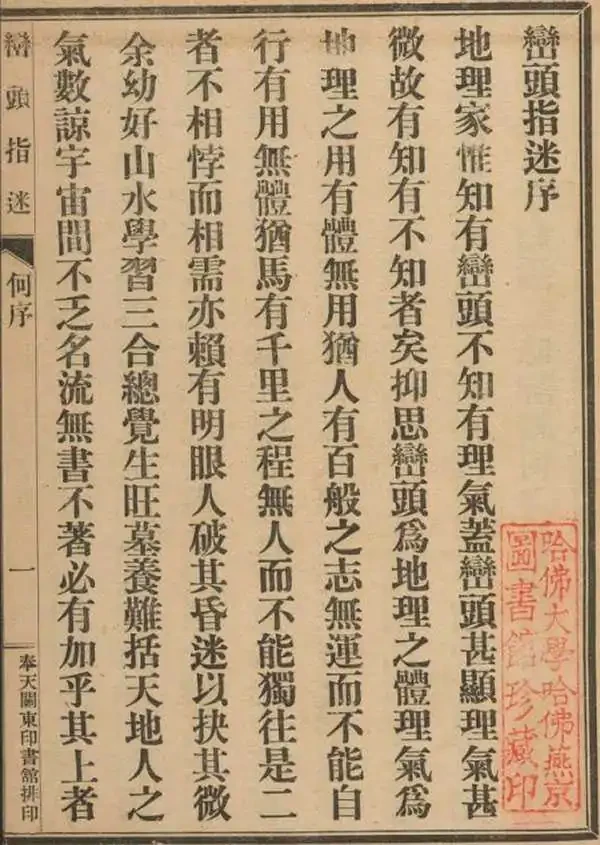 巒頭指迷序
地理家惟知有巒頭不知有理氣蓋巒頭甚顯理氣甚
微故有知有不知者矣抑思巒頭爲地理之體理氣爲
地理之用有體無用猶人有百般之志無運而不能自
行有用無體猶馬有千里之程無人而不能獨往是二
者不相悖而相需亦賴有明眼人破其昏迷以抉其微
余幼好山水學習三合總覺生旺墓養難括天地人之
氣數諒宇宙間不乏名流無書不著必有加乎其上者
巒頭指迷
何序
一
奉天關東印書館排印
哈佛大學哈佛燕京
圖書館珍藏印